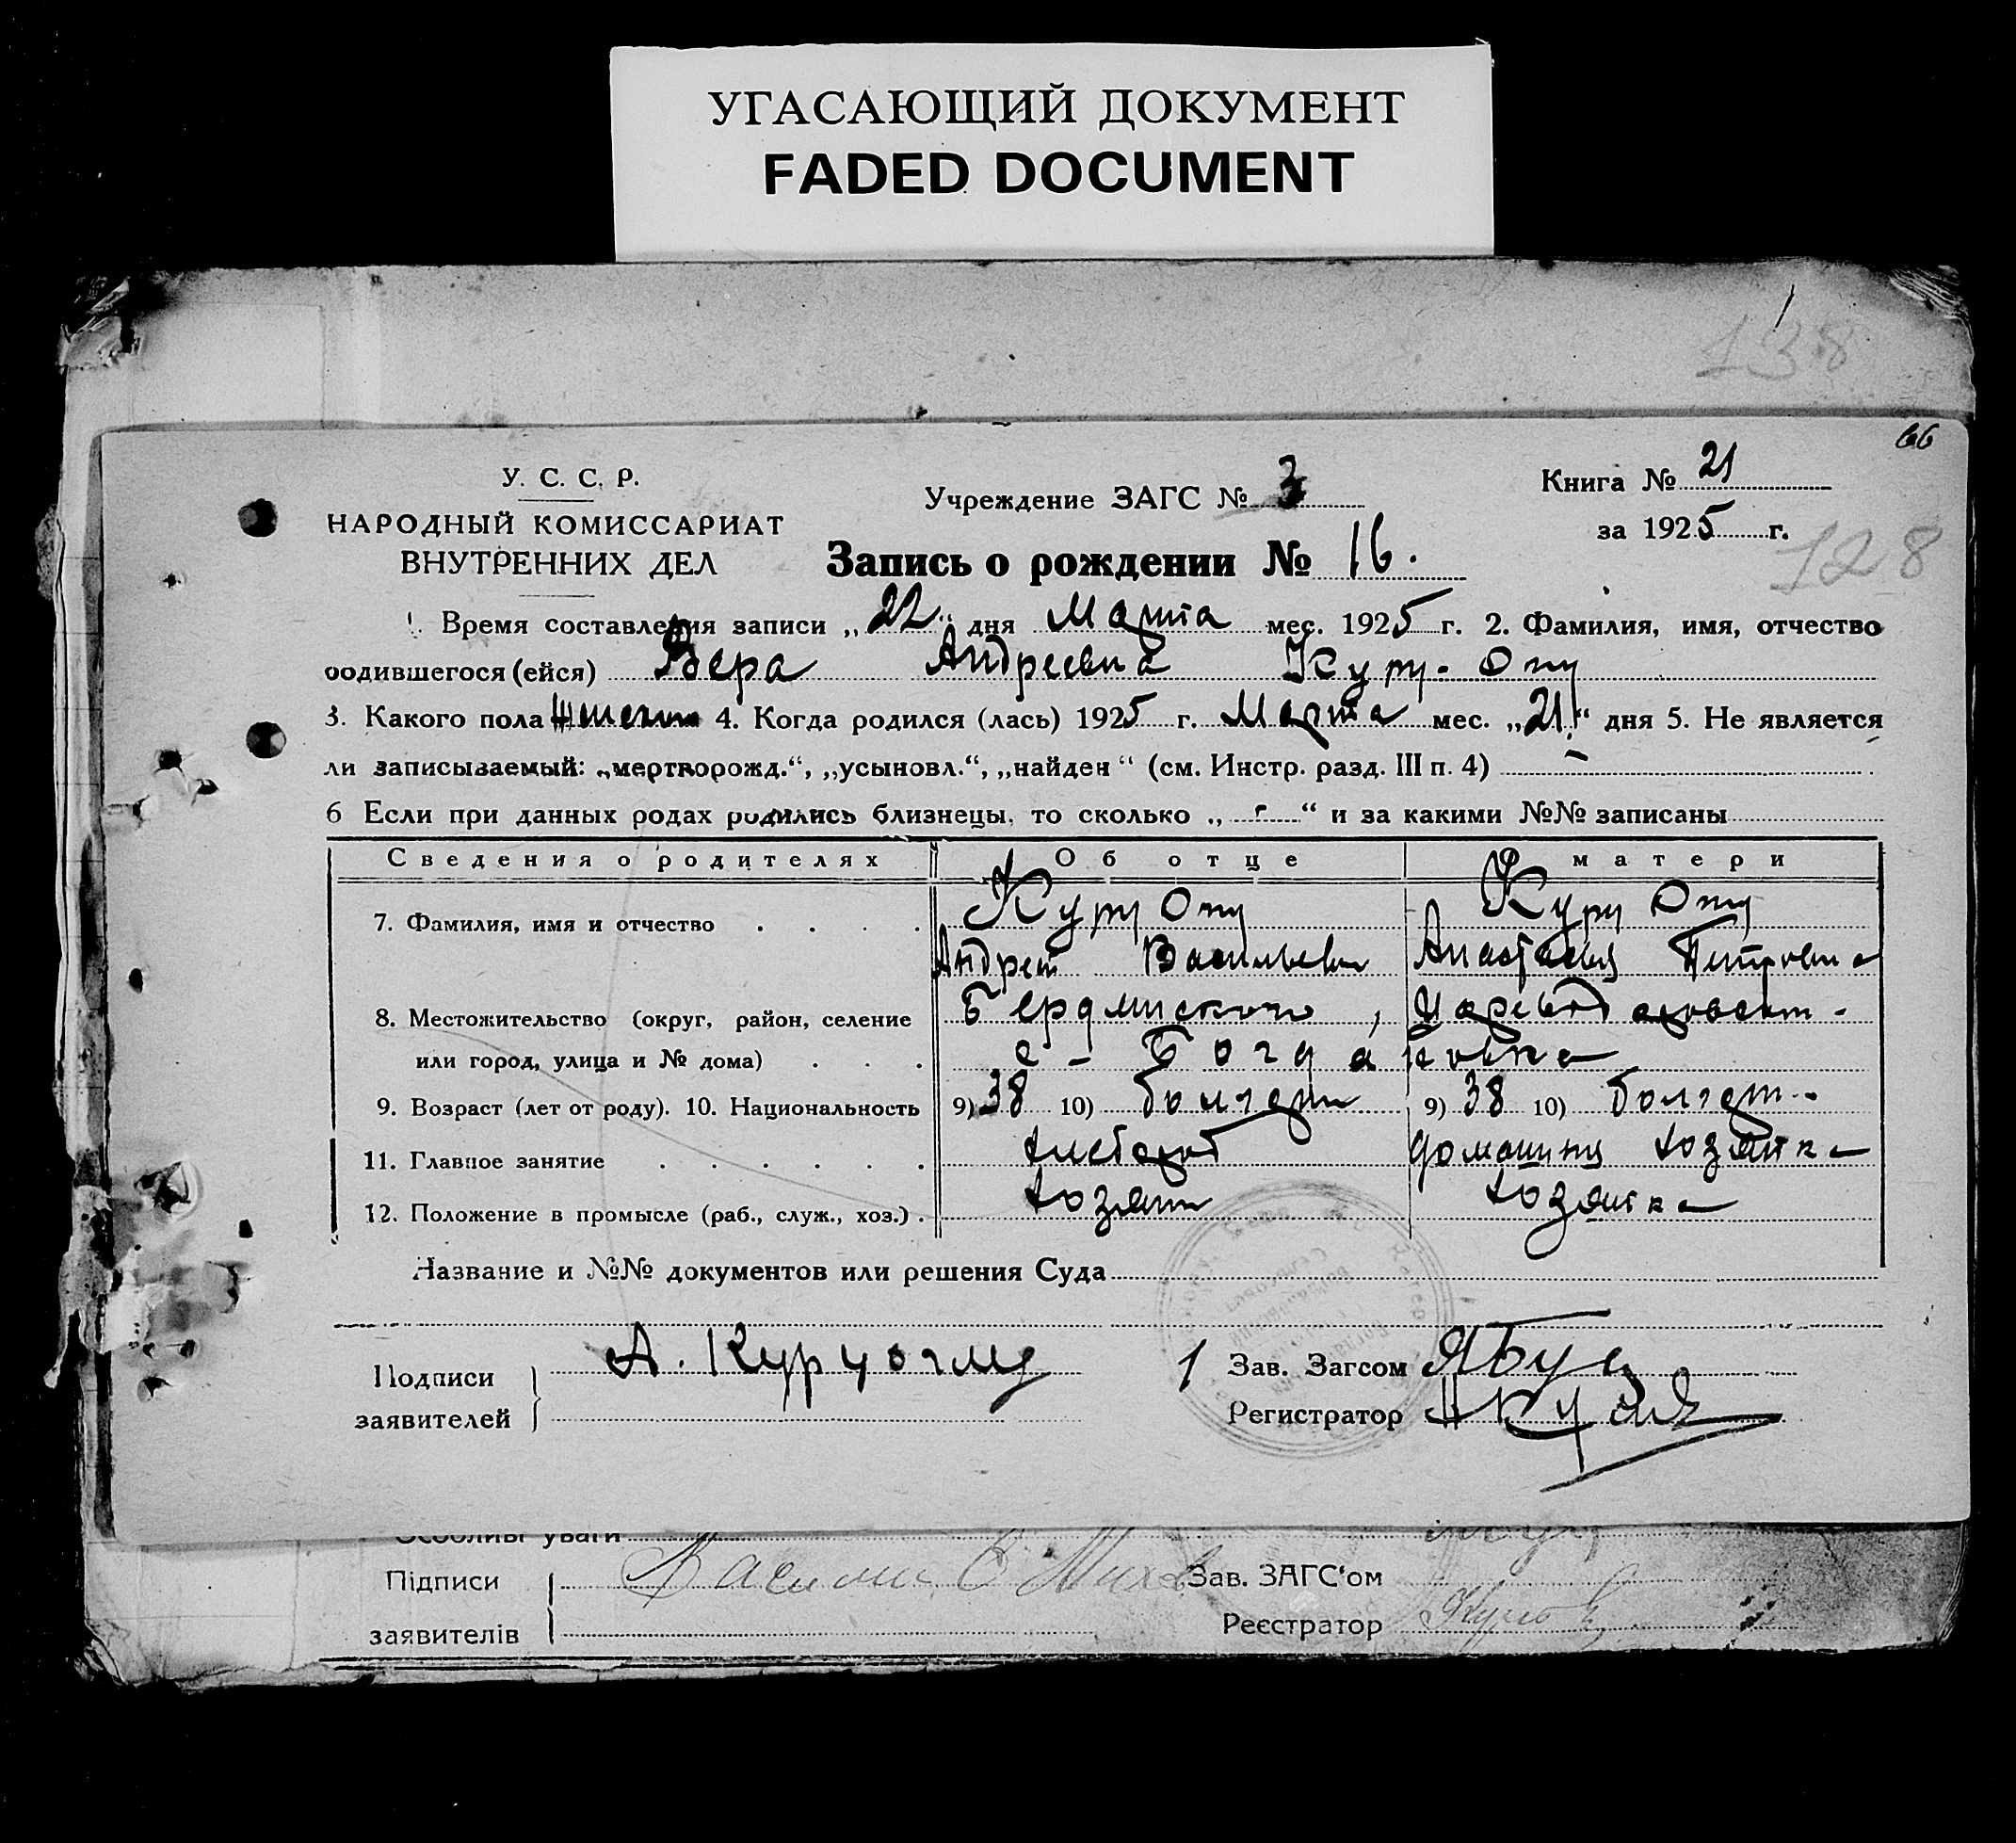 УГАСАЮЩИЙ ДОКУМЕНТ
FADED DOCUMENT
138
66
У. С. С. Р.
НАРОДНЫЙ КОМИССАРИАТ
ВНУТРЕННИХ ДЕЛ
Учреждение ЗАГС № 3
Книга № 21
за 1925 г.
128
Запись о рождении № 16.
1. Время составления записи „22“ дня Марта мес. 1925 г. 2. Фамилия, имя, отчество
родившегося (ейся) Вера Андреевна Куру-Оглу
3. Какого пола 4. Когда родился (лась) 1925 г. Марта мес. „21“ дня 5. Не является
ли записываемый: „мертворожд.“, „усыновл.“, „найден“ (см. Инстр. разд. III п. 4) –
6 Если при данных родах родились близнецы, то сколько „ “ и за какими №№ записаны
Сведения о родителях Об отце О матери
7. Фамилия, имя и отчество Куру Оглу Куру Оглу
Андрей Васильевич Анастасия Петровна
8. Местожительство (округ, район, селение Бердянского,
или город, улица и № дома) с - Богдановка
9. Возраст (лет от роду). 10. Национальность 9) 38 10) болгарин 9) 38 10) болгар.
11. Главное занятие хлебороб домашняя хозяйка
12. Положение в промысле (раб., служ., хоз.) хозяин хозяйка
Название и №№ документов или решения Суда
Подписи заявителей А. Куруоглу
Зав. Загсом
Регистратор
Особливі уваги
Підписи
заявителів
Зав. ЗАГС'ом
Реєстратор